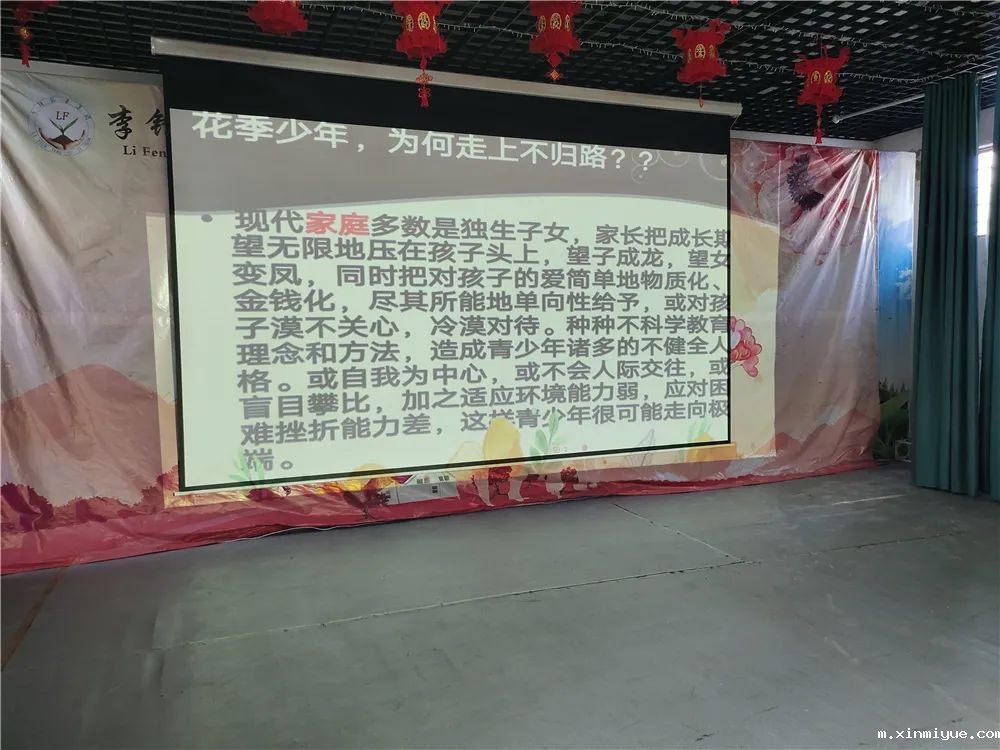 LF
李
Li Fen
花季少年，为何走上不归路？？
• 现代家庭多数是独生子女，家长把成长期
望无限地压在孩子头上，望子成龙，望女
变凤，同时把对孩子的爱简单地物质化、
金钱化，尽其所能地单向性给予，或对孩
子漠不关心，冷漠对待。种种不科学教育
理念和方法，造成青少年诸多的不健全人
格。或自我为中心，或不会人际交往，或
盲目攀比，加之适应环境能力弱，应对困
难挫折能力差，这样青少年很可能走向极
端。
m.xinmiyue.com